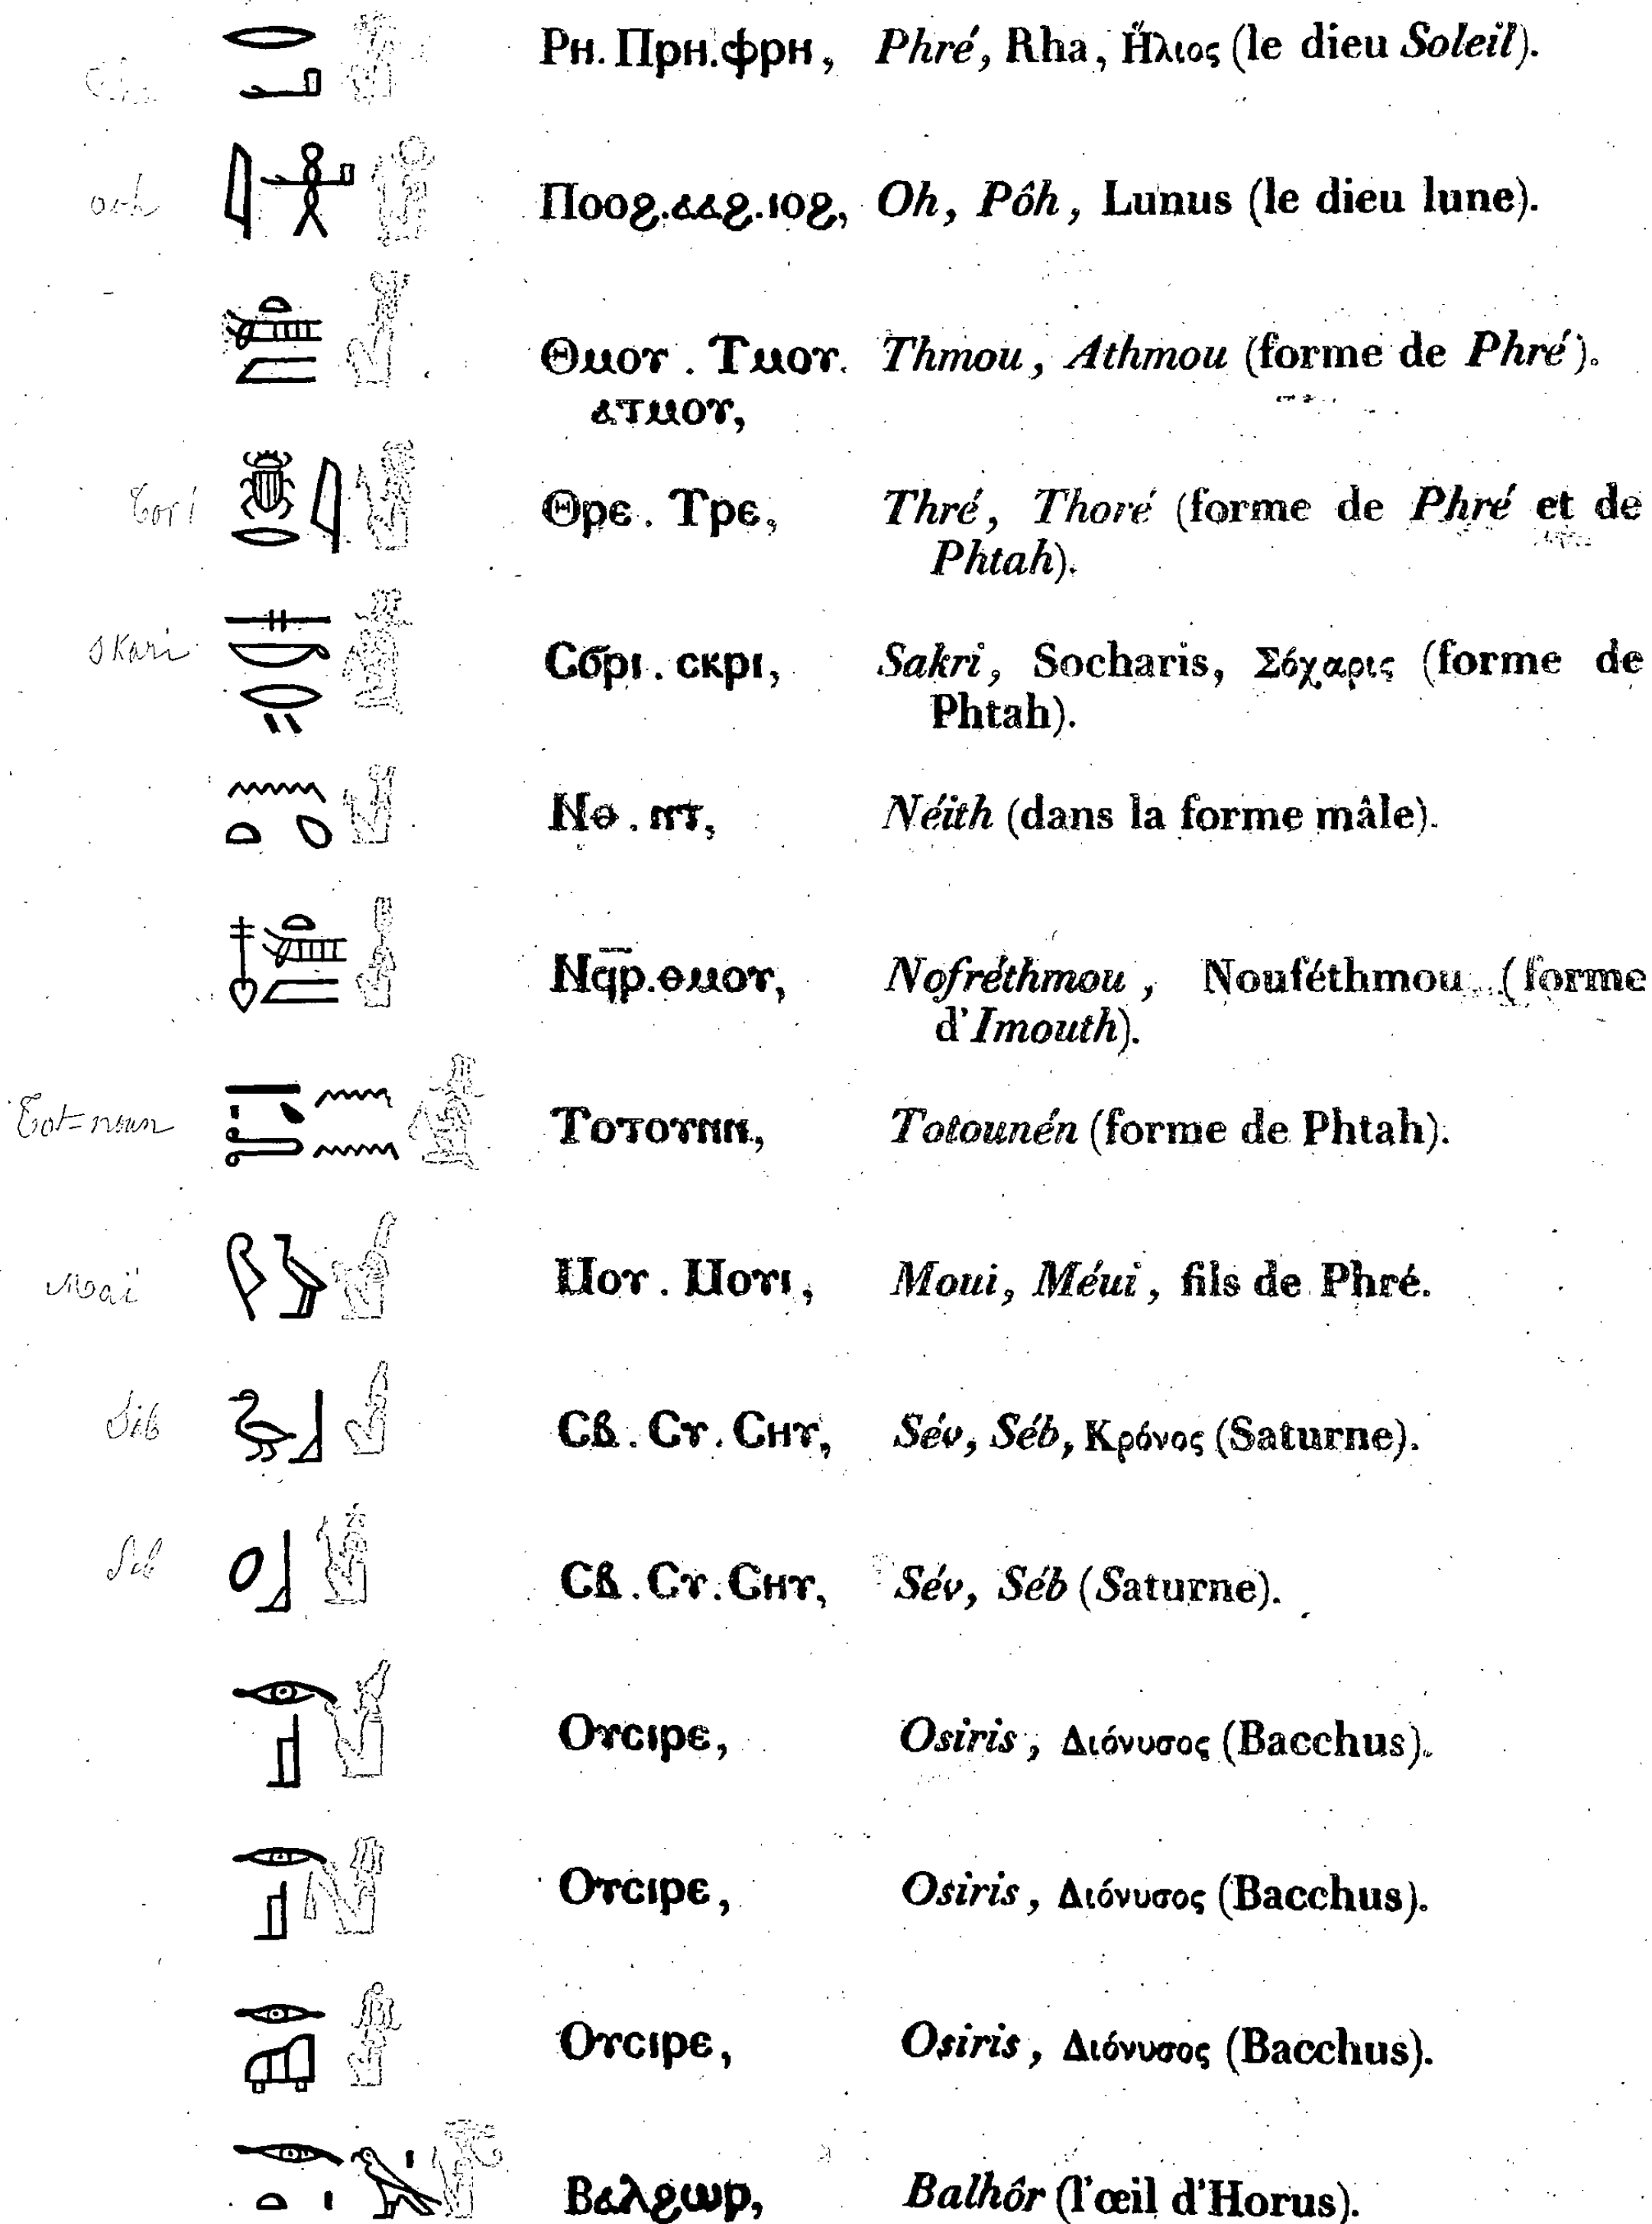 Ⲣⲏ. Ⲡⲣⲏ. ⲫⲣⲏ, Phré, Rha, Ἥλιος (le dieu Soleil).
ooh Ⲡⲟⲟϩ.ⲁⲁϩ.ⲓⲟϩ, Oh, Pôh, Lunus (le dieu lune).
Ⲑⲙⲟⲩ . Ⲧⲙⲟⲩ. Thmou, Athmou (forme de Phré).
ⲁⲧⲙⲟⲩ,
Tori Ⲑⲣⲉ . Ⲧⲣⲉ, Thré, Thoré (forme de Phré et de
Phtah).
skari Ⲥϭⲣⲓ . ⲥⲕⲣⲓ, Sakri, Socharis, Σόχαρις (forme de
Phtah).
Ⲛⲑ . ⲛⲧ, Néith (dans la forme mâle).
Ⲛϥ̅ⲣ̅.ⲑⲙⲟⲩ, Nofréthmou, Nouféthmou (forme
d'Imouth).
Tot=noun Ⲧⲟⲧⲟⲩⲛⲛ, Totounén (forme de Phtah).
Moaï Ⲙⲟⲩ . Ⲙⲟⲩⲓ, Moui, Méui, fils de Phré.
Séb Ⲥⲃ . Ⲥⲩ . Ⲥⲏⲩ, Sév, Séb, Κρόνος (Saturne).
Seb Ⲥⲃ . Ⲥⲩ . Ⲥⲏⲩ, Sév, Séb (Saturne).
Ⲟⲩⲥⲓⲣⲉ, Osiris, Διόνυσος (Bacchus).
Ⲟⲩⲥⲓⲣⲉ, Osiris, Διόνυσος (Bacchus).
Ⲟⲩⲥⲓⲣⲉ, Osiris, Διόνυσος (Bacchus).
Ⲃⲁⲗϩⲱⲣ, Balhôr (l'œil d'Horus).